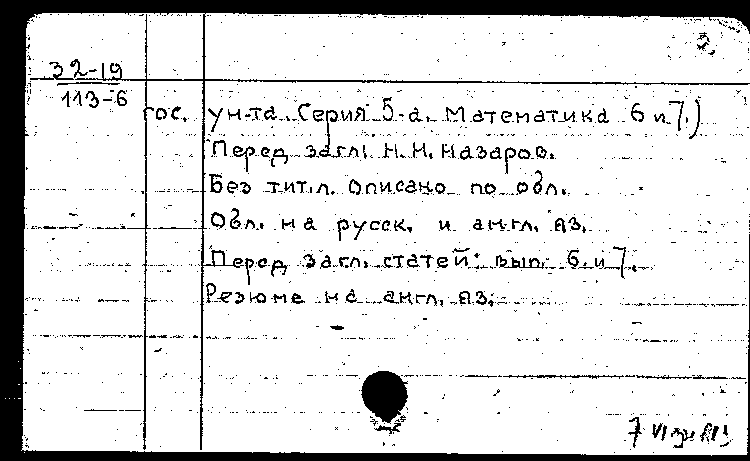 2.
32-19
113-6
гос. ун-та. Серия 5-а. Математика 6 и 7.)
Перед загл. Н. Н. Назаров.
Без тит. л. Описано по обл.
Обл. на русск. и англ. яз.
Перед загл. статей: вып. 6. и 7.
Резюме на англ. яз.
7